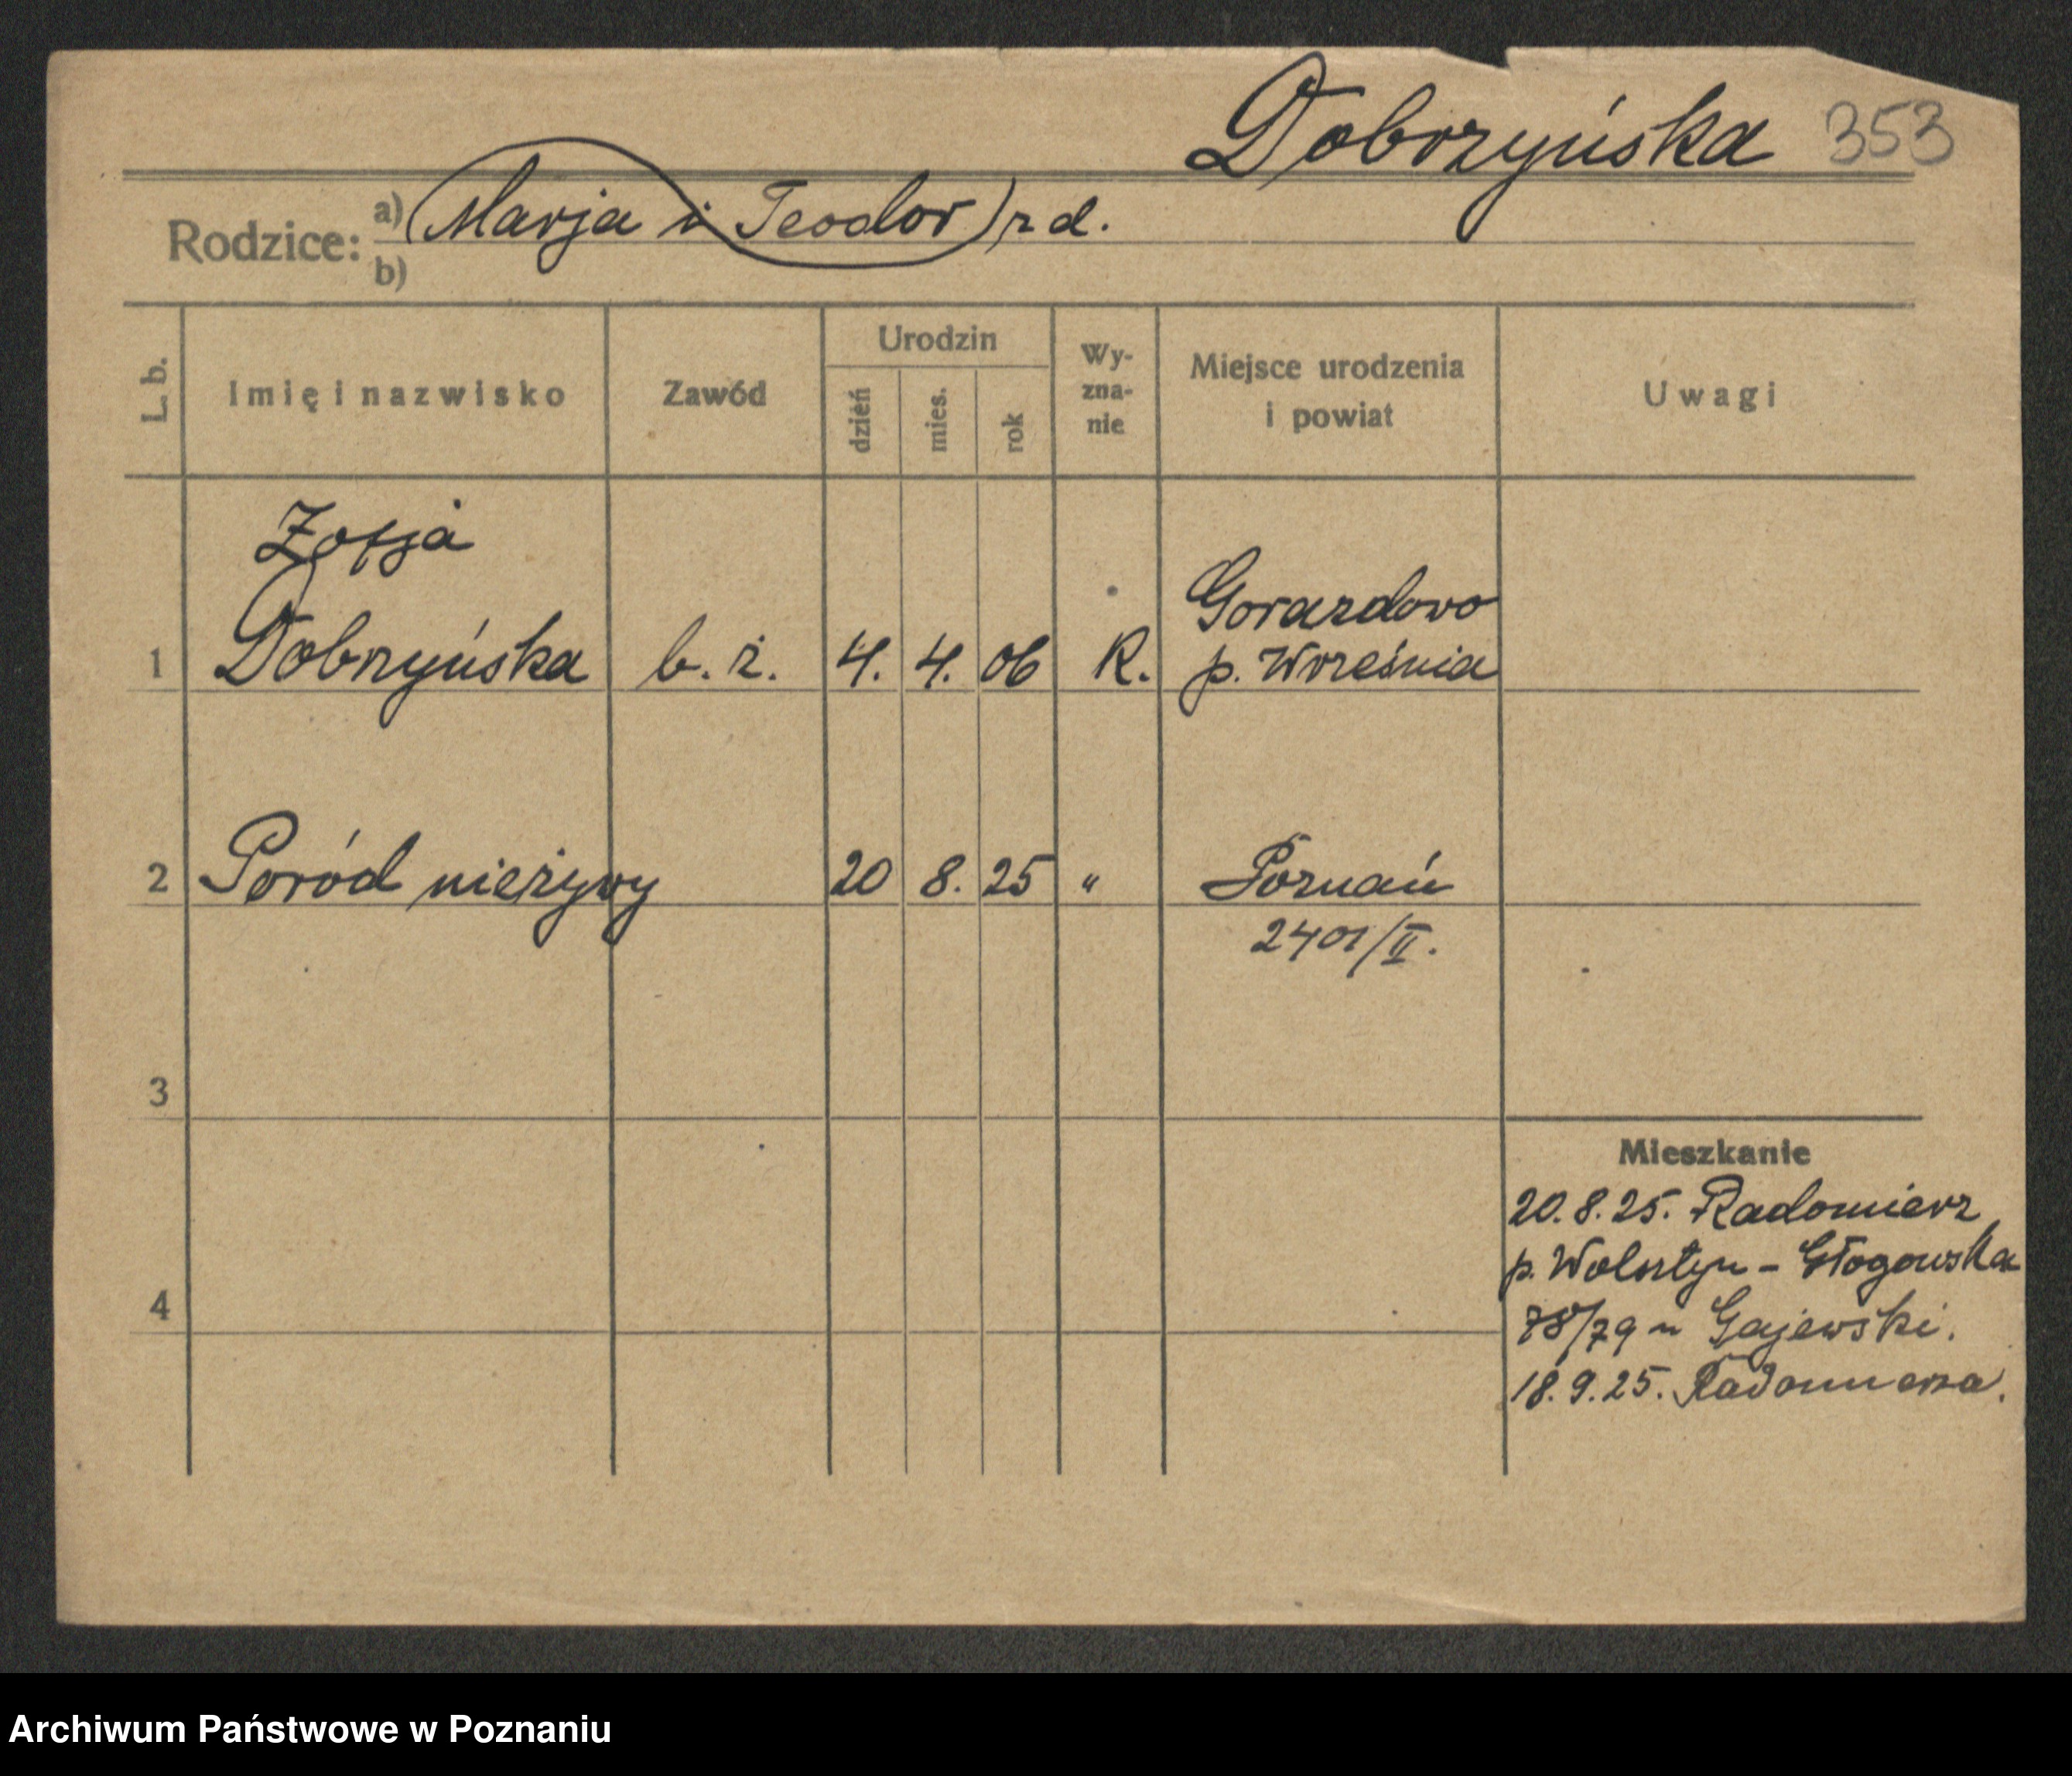 Dobrzyńska 353
Rodzice: a) (Marja i Teodor) z d.
b)
L. b. Imię i nazwisko Zawód Urodzin dzień mies. rok Wy-zna-nie Miejsce urodzenia i powiat Uwagi
Zofja
Gorazdowo
1 Dobrzyńska b. z. 4. 4. 06 K. p. Września
2 Poród nieżywy 20 8. 25 " Poznań
2401/II.
3
Mieszkanie
20.8.25. Radomierz
p. Wolsztyn - Głogowska
4
78/79 u Gajewski.
18.9.25. Radomierza.
Archiwum Państwowe w Poznaniu